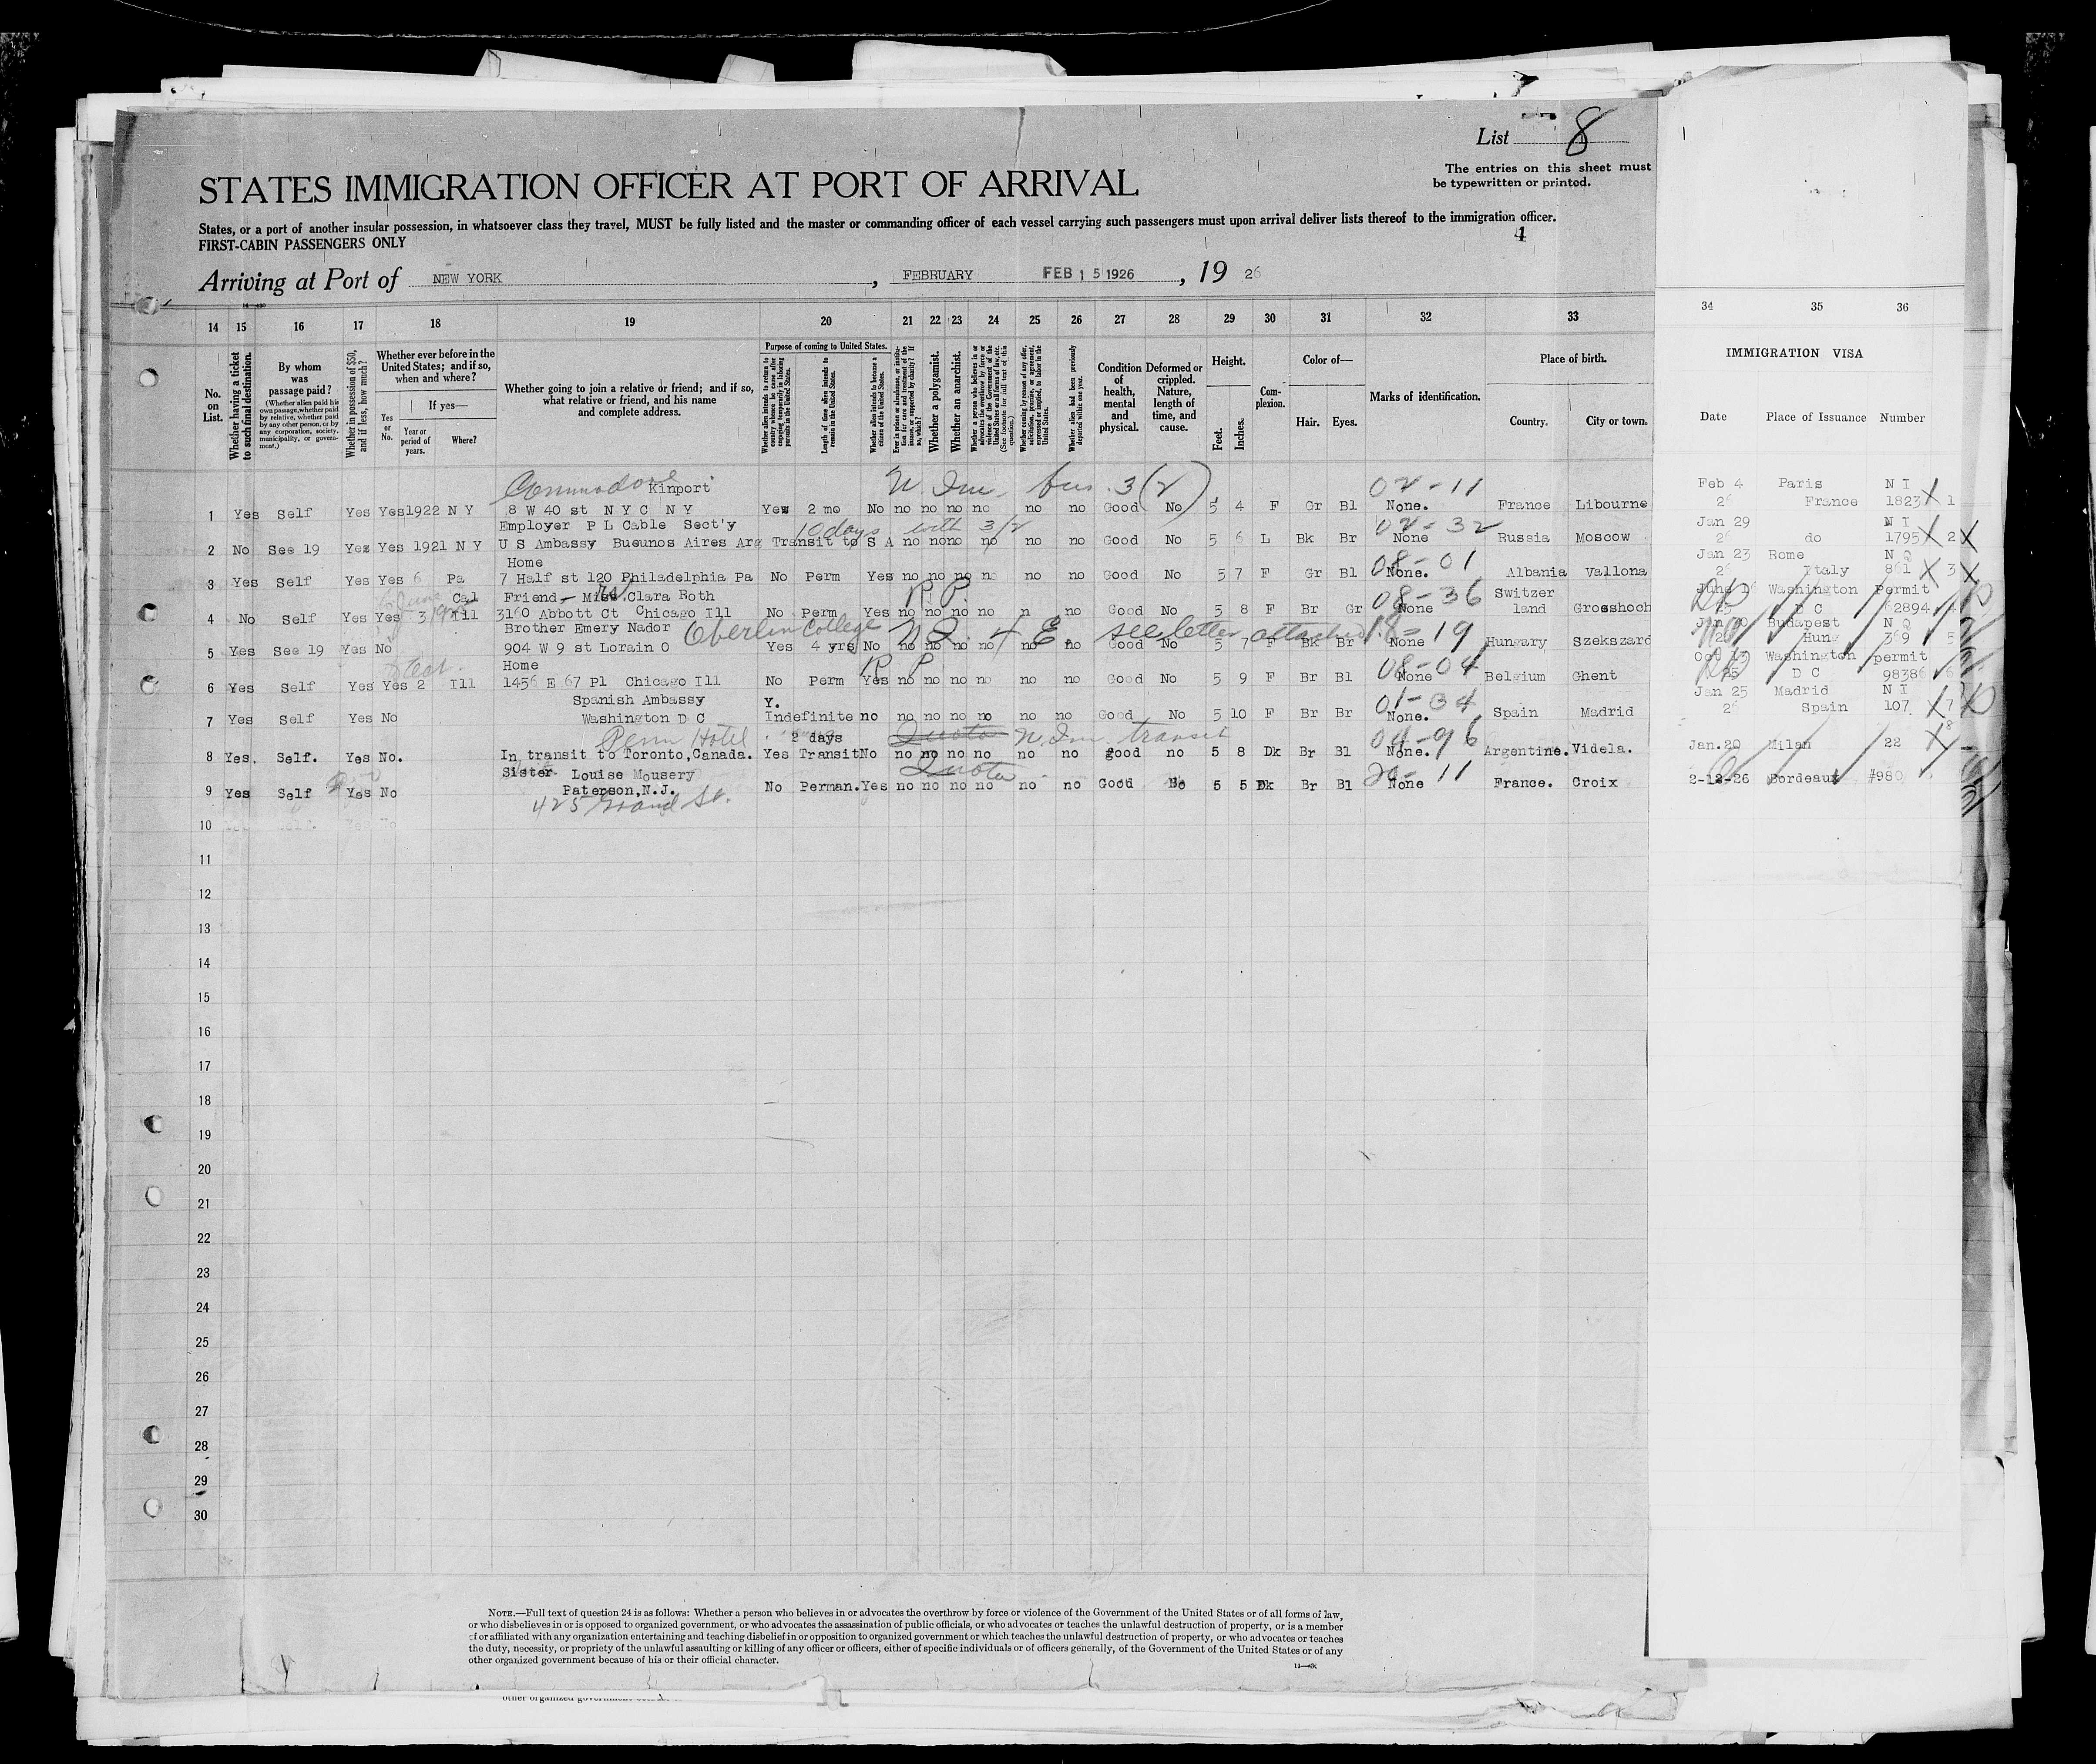 List 8
The entries on this sheet must
be typewritten or printed.
STATES IMMIGRATION OFFICER AT PORT OF ARRIVAL
States, or a port of another insular possession, in whatsoever class they travel, MUST be fully listed and the master or commanding officer of each vessel carrying such passengers must upon arrival deliver lists thereof to the immigration officer.
FIRST-CABIN PASSENGERS ONLY
4
Arriving at Port of NEW YORK, FEBRUARY FEB 15 1926, 19 26
14 15 16 17 18 19 20 21 22 23 24 25 26 27 28 29 30 31 32 33 34 35 36
No. on List.
Whether having a ticket to such final destination.
By whom was passage paid?
(Whether alien paid his own passage, whether paid by relative, whether paid by any other person, or by any corporation, society, municipality, or government.)
Whether in possession of $50, and if less, how much?
Whether ever before in the United States; and if so, when and where?
Yes or No.
If yes—
Year or period of years.
Where?
Whether going to join a relative or friend; and if so, what relative or friend, and his name and complete address.
Purpose of coming to United States.
Whether alien intends to return to country whence he came after engaging temporarily in laboring pursuits in the United States.
Length of time alien intends to remain in the United States.
Whether alien intends to become a citizen of the United States.
Whether a polygamist.
Whether an anarchist.
Condition of health, mental and physical.
Deformed or crippled. Nature, length of time, and cause.
Height.
Feet. Inches.
Complexion.
Color of—
Hair. Eyes.
Marks of identification.
Place of birth.
Country. City or town.
IMMIGRATION VISA
Date Place of Issuance Number
Commodore Kinport N. Im. bus. 3(2) 02-11 Feb 4 Paris N I
1 Yes Self Yes Yes 1922 N Y 8 W 40 st N Y C N Y Yes 2 mo No no no no no no no Good No 5 4 F Gr Bl None. France Libourne 26 France 1823 1
Employer P L Cable Sect'y 10 days with 3/2 02-32 Jan 29 N I
2 No See 19 Yes Yes 1921 N Y U S Ambassy Bueunos Aires Arg Transit to S A no no no no no no Good No 5 6 L Bk Br None Russia Moscow 26 do 1795 2
Home 08-01 Jan 23 Rome N Q
3 Yes Self Yes Yes 6 Pa 7 Half st 120 Philadelphia Pa No Perm Yes no no no no no no Good No 5 7 F Gr Bl None. Albania Vallona 26 Italy 861 3
Cal Friend - Miss Clara Roth R.P. 08-36 Switzer June 16 Washington Permit
4 No Self Yes Yes 3 Ill 3160 Abbott Ct Chicago Ill No Perm Yes no no no no n no Good No 5 8 F Br Gr None land Grosshoch 25 D C 62894 4
Brother Emery Nador Oberlin College N Q. 4 E. see letter attached 18-19 Budapest N Q
5 Yes See 19 Yes No 904 W 9 st Lorain O Yes 4 yrs No no no no no no no Good No 5 7 F Bk Br None Hungary Szekszard 26 Hung 369 5
Home R P 08-04 Oct 13 Washington permit
6 Yes Self Yes Yes 2 Ill 1456 E 67 Pl Chicago Ill No Perm Yes no no no no no no Good No 5 9 F Br Bl None Belgium Ghent 25 D C 98386 6
Spanish Ambassy Y. 01-34 Jan 25 Madrid N I
7 Yes Self Yes No Washington D C Indefinite no no no no no no no Good No 5 10 F Br Br None. Spain Madrid 26 Spain 107 7
Penn Hotel 2 days Quota N. Im transit 04-96 8
8 Yes. Self. Yes No. In transit to Toronto,Canada. Yes Transit No no no no no no no good no 5 8 Dk Br Bl None. Argentine. Videla. Jan.20 Milan 22
Sister Louise Mousery Quota 20-11
9 Yes Self Yes No Paterson,N.J. No Perman. Yes no no no no no no Good No 5 5 Dk Br Bl None France. Croix 2-12-26 Bordeaux #980
425 Grand St.
10
11
12
13
14
15
16
17
18
19
20
21
22
23
24
25
26
27
28
29
30
NOTE.—Full text of question 24 is as follows: Whether a person who believes in or advocates the overthrow by force or violence of the Government of the United States or of all forms of law,
or who disbelieves in or is opposed to organized government, or who advocates the assassination of public officials, or who advocates or teaches the unlawful destruction of property, or is a member
of or affiliated with any organization entertaining and teaching disbelief in or opposition to organized government or which teaches the unlawful destruction of property, or who advocates or teaches
the duty, necessity, or propriety of the unlawful assaulting or killing of any officer or officers, either of specific individuals or of officers generally, of the Government of the United States or of any
other organized government because of his or their official character.